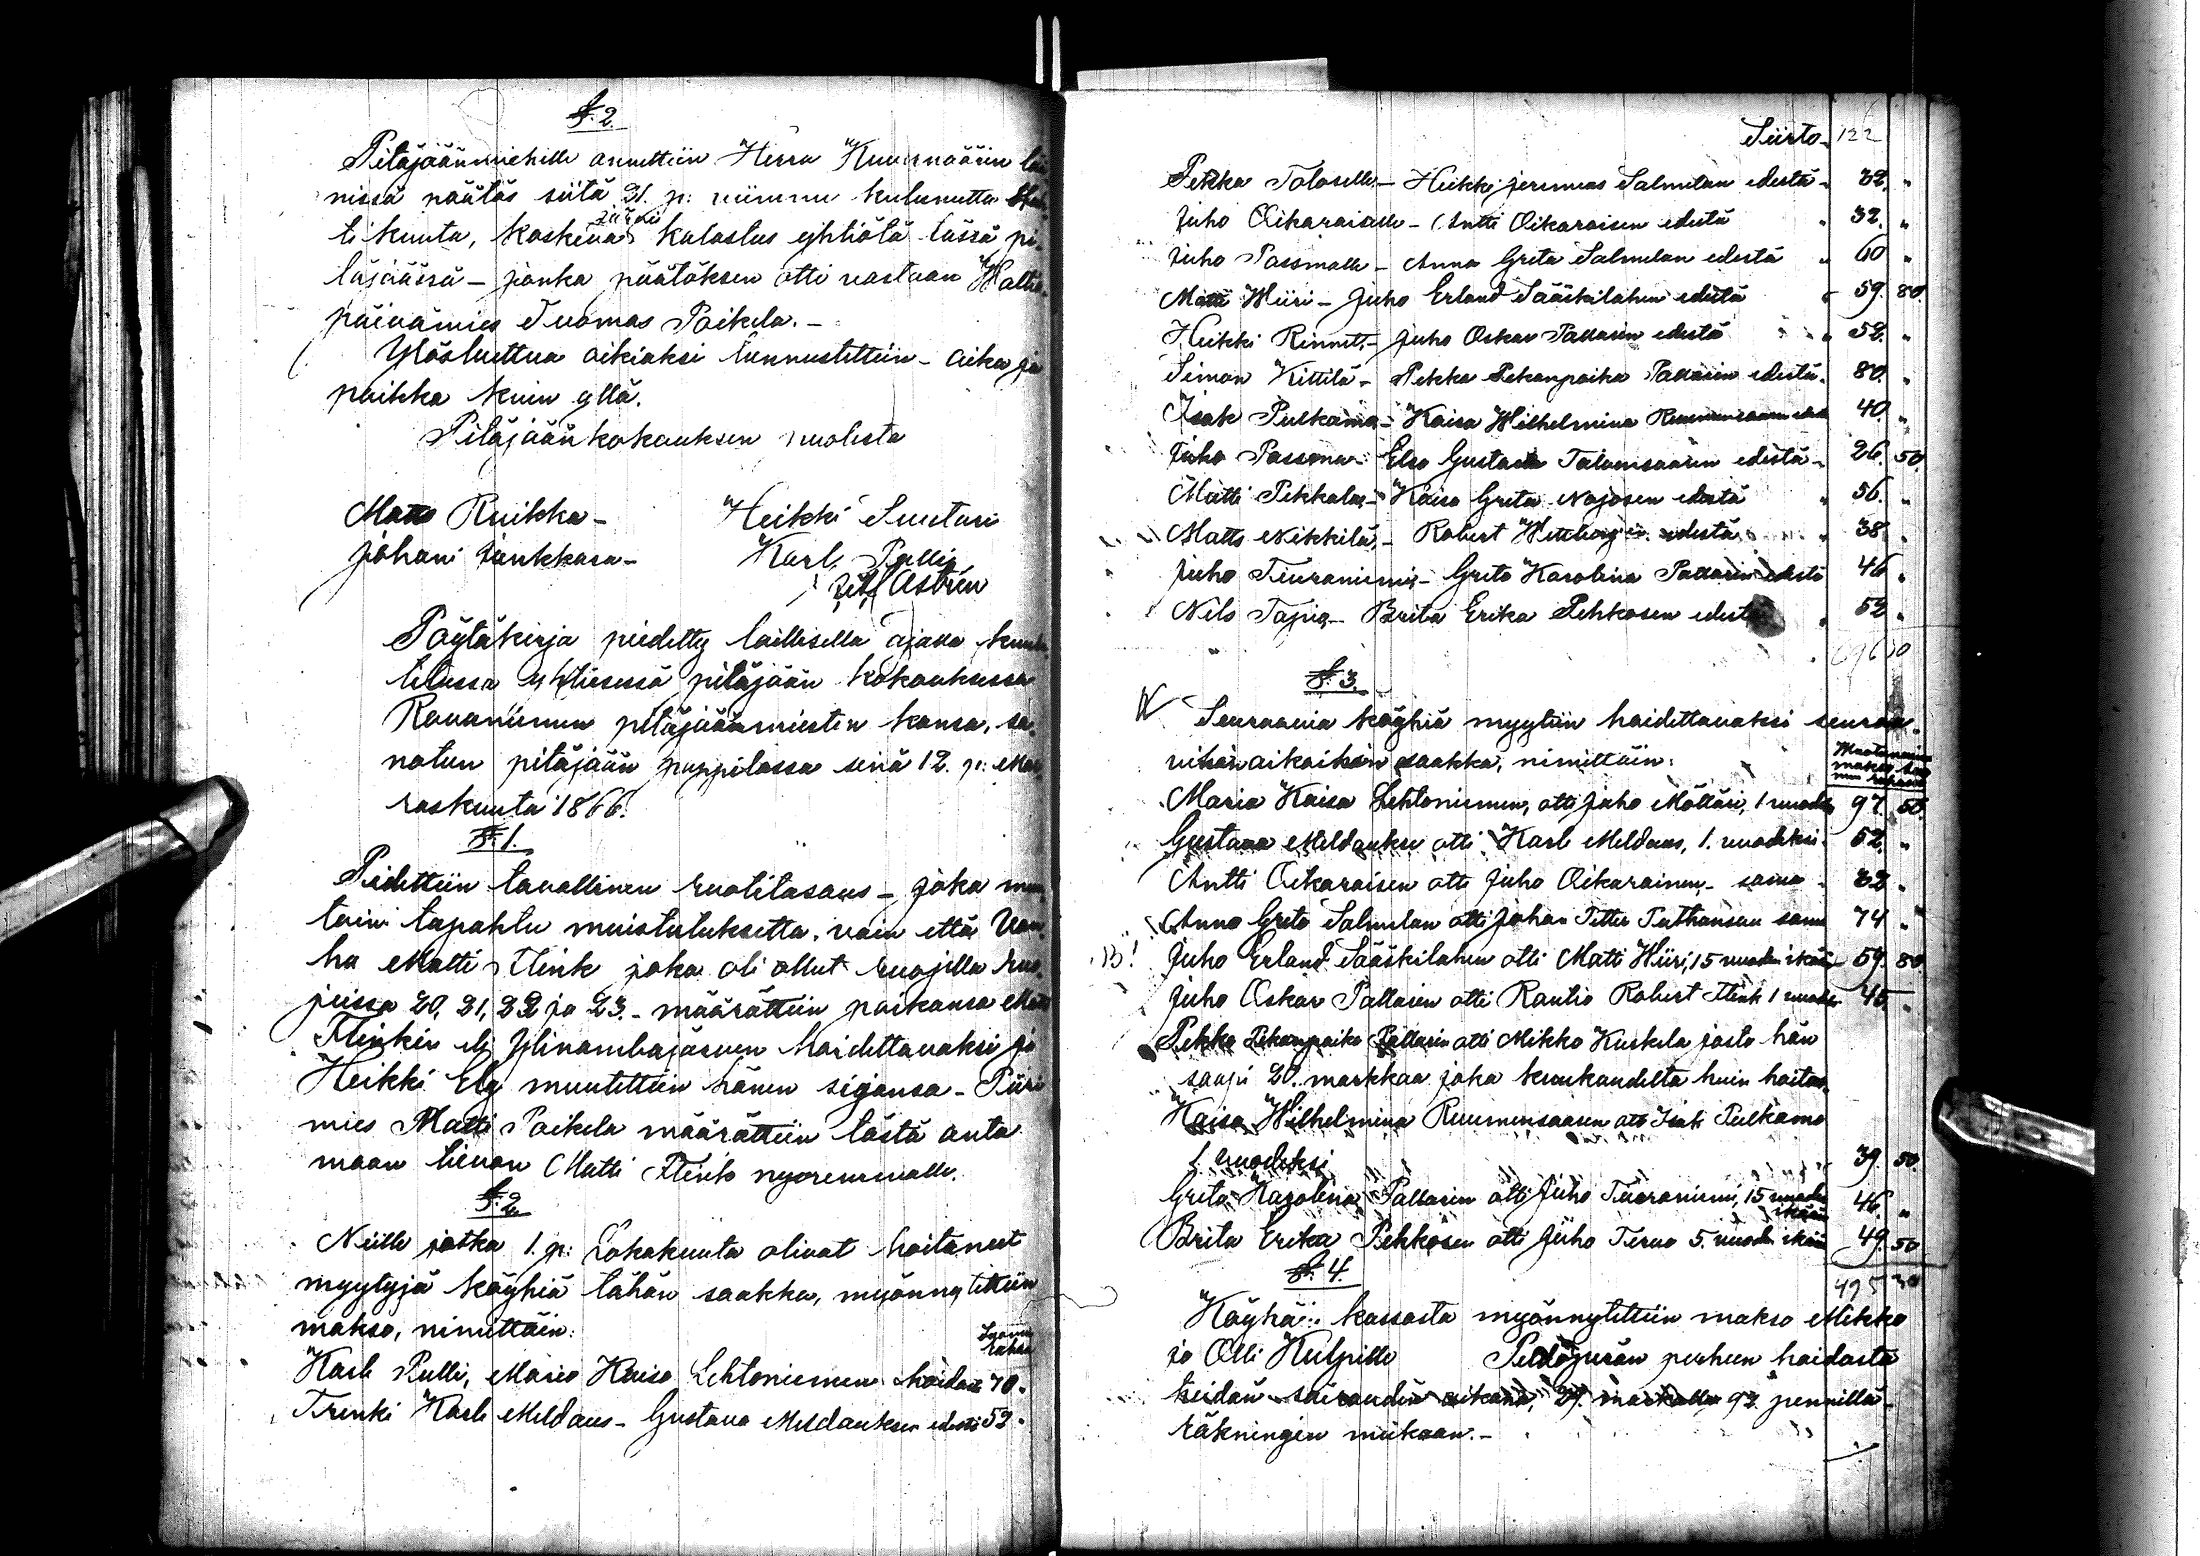 §. 2.
Pitäjäänmiehille annettiin Herra Kuvernöörin lää-
nissä päätös siitä 31. p: viimme kulunutta
ti kuuta, koskeva kalastus yhtiötä tässä pi-
täjäässä – jonka päätöksen otti vastaan Waltio-
päivämies Tuomas Poikela. –
Ylösluettua oikiaksi tunnustettiin – aika ja
paikka kuin yllä.
Pitäjäänkokouksen puolesta
Matts Ruikka – Heikki Suutari
Johani Junkkara – Karl Pulli
Astrén
Pöytäkirja pidetty laillisella ajalla kuulu-
tetussa yhtisessä pitäjään kokouksessa
Rovaniemen pitäjäänmiesten kansa, sa-
notun pitäjään pappilassa sinä 12. p: Mar-
raskuuta 1866.
§. 1.
Pidettiin tavallinen ruotitasaus – joka muu-
toin tapahtu muistutuksetta, vain että Van-
ha Matti Flink joka oli ollut ruojilla ruo-
jeissa 20, 21, 22 ja 23. – määrättiin poikansa Matti
Flinkin eli Ylinambajärven hoidettavaksi ja
Heikki Ely muutettiin hänen sijansa – Piiri
mies Matti Poikela määrättiin tästä anta
maan tievon Matti Flink nyoremmalle.
§. 2.
Niille jotka 1. p: Lokakuuta olivat hoitaneet
myytyjä köyhiä tähän saakka, myönnytettiin
makso, nimittäin:
Suomen
rahaa
Karl Pulli, Maria Kaisa Lehtoniemen hoidosta 70 "
Trenki Karl Meldaus – Gustava Meldauksen edestä 52 "
Siirto – 122
Pekka Toloselle – Heikki Jeremias Salmelan edestä – 32. "
Juho Oikaraiselle – Antti Oikaraisen edestä " 32. "
Juho Passmalle – Anna Greta Salmelan edestä " 60 "
Matti Wiiri – Juho Erland Sääskilahen edestä " 59. 80
Heikki Rinnet, – Juho Oskar Pallarin edestä " 52. "
Simon Kittilä – Pekka Pekanpoika Pallarin edestä. 80. "
Isak Pulkama – Kaisa Wilhelmina Ruumensaaren edest 40. "
Juho Passma – Elsa Gustava Talamsaaren edestä – 26. 50
Matti Pekkala – Kaisa Greta Najosen edestä " 56. "
Matts Nikkilä, – Robert Wettbergin edestä " 38. "
Juho Tiuraniemi – Greta Karolina Pallarin edestä 46 "
Nils Tapio – Brita Erika Pehkosen edestä " 52 "
§. 3.
Seuraavia köyhiä myytiin hoidettavaksi seuraa-
vihin aikaihin saakka, nimittäin:
Maria Kaisa Lehtoniemen, otti Juho Möttäri, 1 vuodeksi 97. 50.
Gustava Meldauksen otti Karl Meldaus, 1. vuodeksi. 52. "
Antti Oikaraisen otti Juho Oikarainen – sama – 32 "
Anna Greta Salmelan otti Johan Petter Puthansuu sama 74 "
B! Juho Erland Sääskilahen otti Matti Wiiri, 15 vuoden ikään 59. 80
Juho Oskar Pallarin otti Rantio Robert Flink 1 vuodeksi 45. "
Pekka Pekanpoika Pallarin otti Mikko Kuskela josta hän
saapi 20. markkaa joka kuukaudelta kuin hoitaa.
Kaisa Wilhelmina Ruumensaaren otti Isak Pulkama
1 vuodeksi 39. 50
Greta Karolina Pallarin otti Juho Tiuraniemi, 15 vuoden ikään 46. "
Brita Erika Pehkosen otti Juho Tervo 5. vuoden ikään 49. 50
495 30
§. 4.
Köyhäin kassasta myönnytettiin makso Mikko
ja Olli Kulpille Peldoperän perheen hoidosta
heidän sairauden aikana, 29. markalla 92. pennillä
räkningin mukaan. –